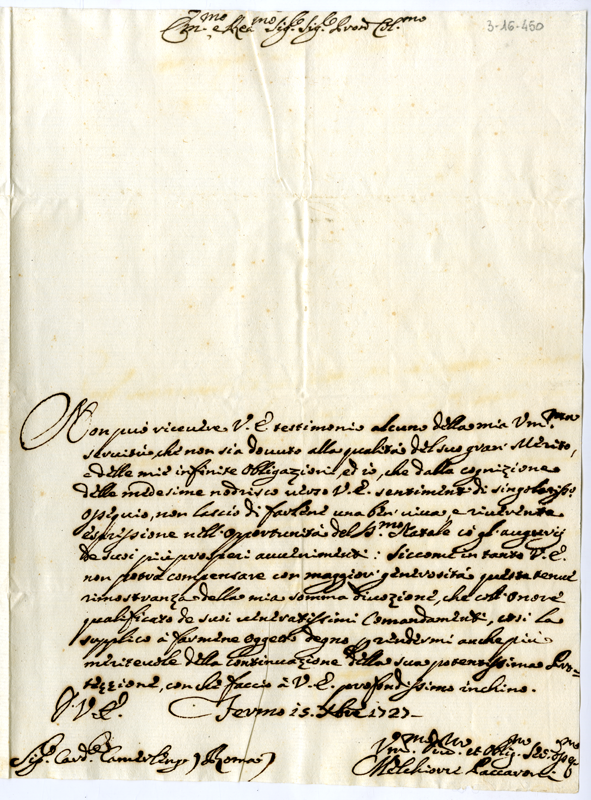 Em.mo e Rev.mo Sig.r Sig.r Pron Col.mo
3-16-450
Non può ricevere V. E. testimonio alcuno della mia Um.ma
servitù, che non sia dovuto alla qualità del suo gran Merito,
e delle mie infinite Obligazioni, ed io, che dalla cognizione
delle medesime nodrisco verso V. E. sentimenti di singolariss.o
ossequio, non lascio di farlene una ben viva, e riverente
espressione nell'opportunità del S.mo Natale co gl'augurij
de suoi più prosperi avvenimenti: Siccome in tanto V. E.
non potrà compensare con maggior generosità questa tenue
rimostranza della mia somma divozione, che coll'onore
qualificato de suoi veneratissimi Comandamenti, così la
supplico à farmene oggetto degno, e rendermi anche più
meritevole della continuazione della sua potentissima Pro=
tezzione, con che faccio à V. E. profondissimo inchino.
D. V. E. Fermo 15. Xbre 1727
Sig.r Card.e Camerlengo (Roma)
Um.mo et Oblig. Ser.
Melchiorre